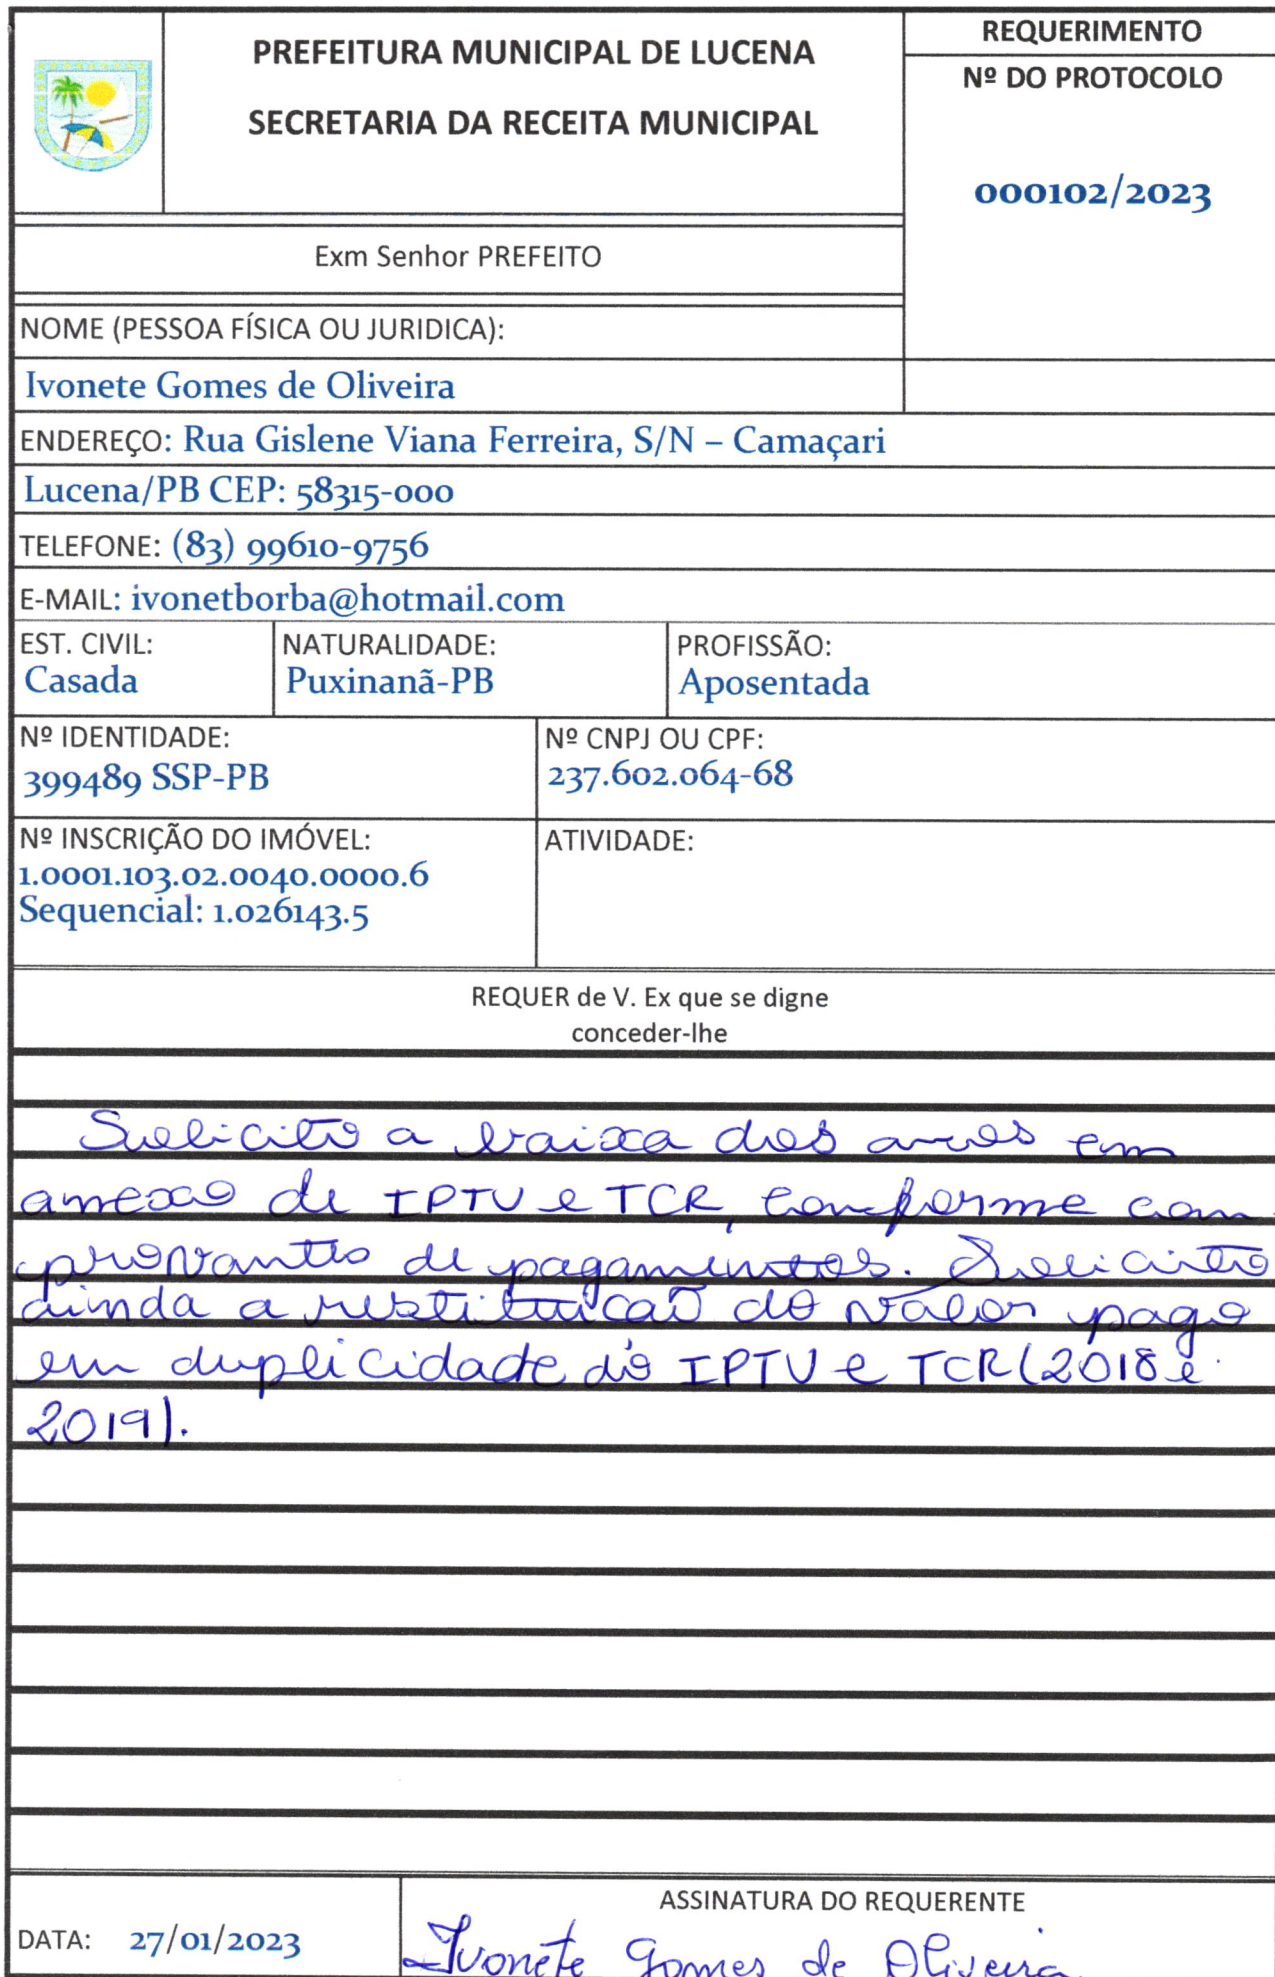 PREFEITURA MUNICIPAL DE LUCENA
SECRETARIA DA RECEITA MUNICIPAL
REQUERIMENTO
Nº DO PROTOCOLO
000102/2023
Exm Senhor PREFEITO
NOME (PESSOA FÍSICA OU JURIDICA):
Ivonete Gomes de Oliveira
ENDEREÇO: Rua Gislene Viana Ferreira, S/N – Camaçari
Lucena/PB CEP: 58315-000
TELEFONE: (83) 99610-9756
E-MAIL: ivonetborba@hotmail.com
EST. CIVIL:
Casada
NATURALIDADE:
Puxinanã-PB
PROFISSÃO:
Aposentada
Nº IDENTIDADE:
399489 SSP-PB
Nº CNPJ OU CPF:
237.602.064-68
Nº INSCRIÇÃO DO IMÓVEL:
1.0001.103.02.0040.0000.6
Sequencial: 1.026143.5
ATIVIDADE:
REQUER de V. Ex que se digne
conceder-lhe
Solicito a baixa dos anos em
anexo de IPTU e TCR, conforme com
provantes de pagamentos. Solicito
ainda a restituicão do valor pago
em duplicidade do IPTU e TCR (2018 e
2019).
DATA: 27/01/2023
ASSINATURA DO REQUERENTE
Ivonete Gomes de Oliveira